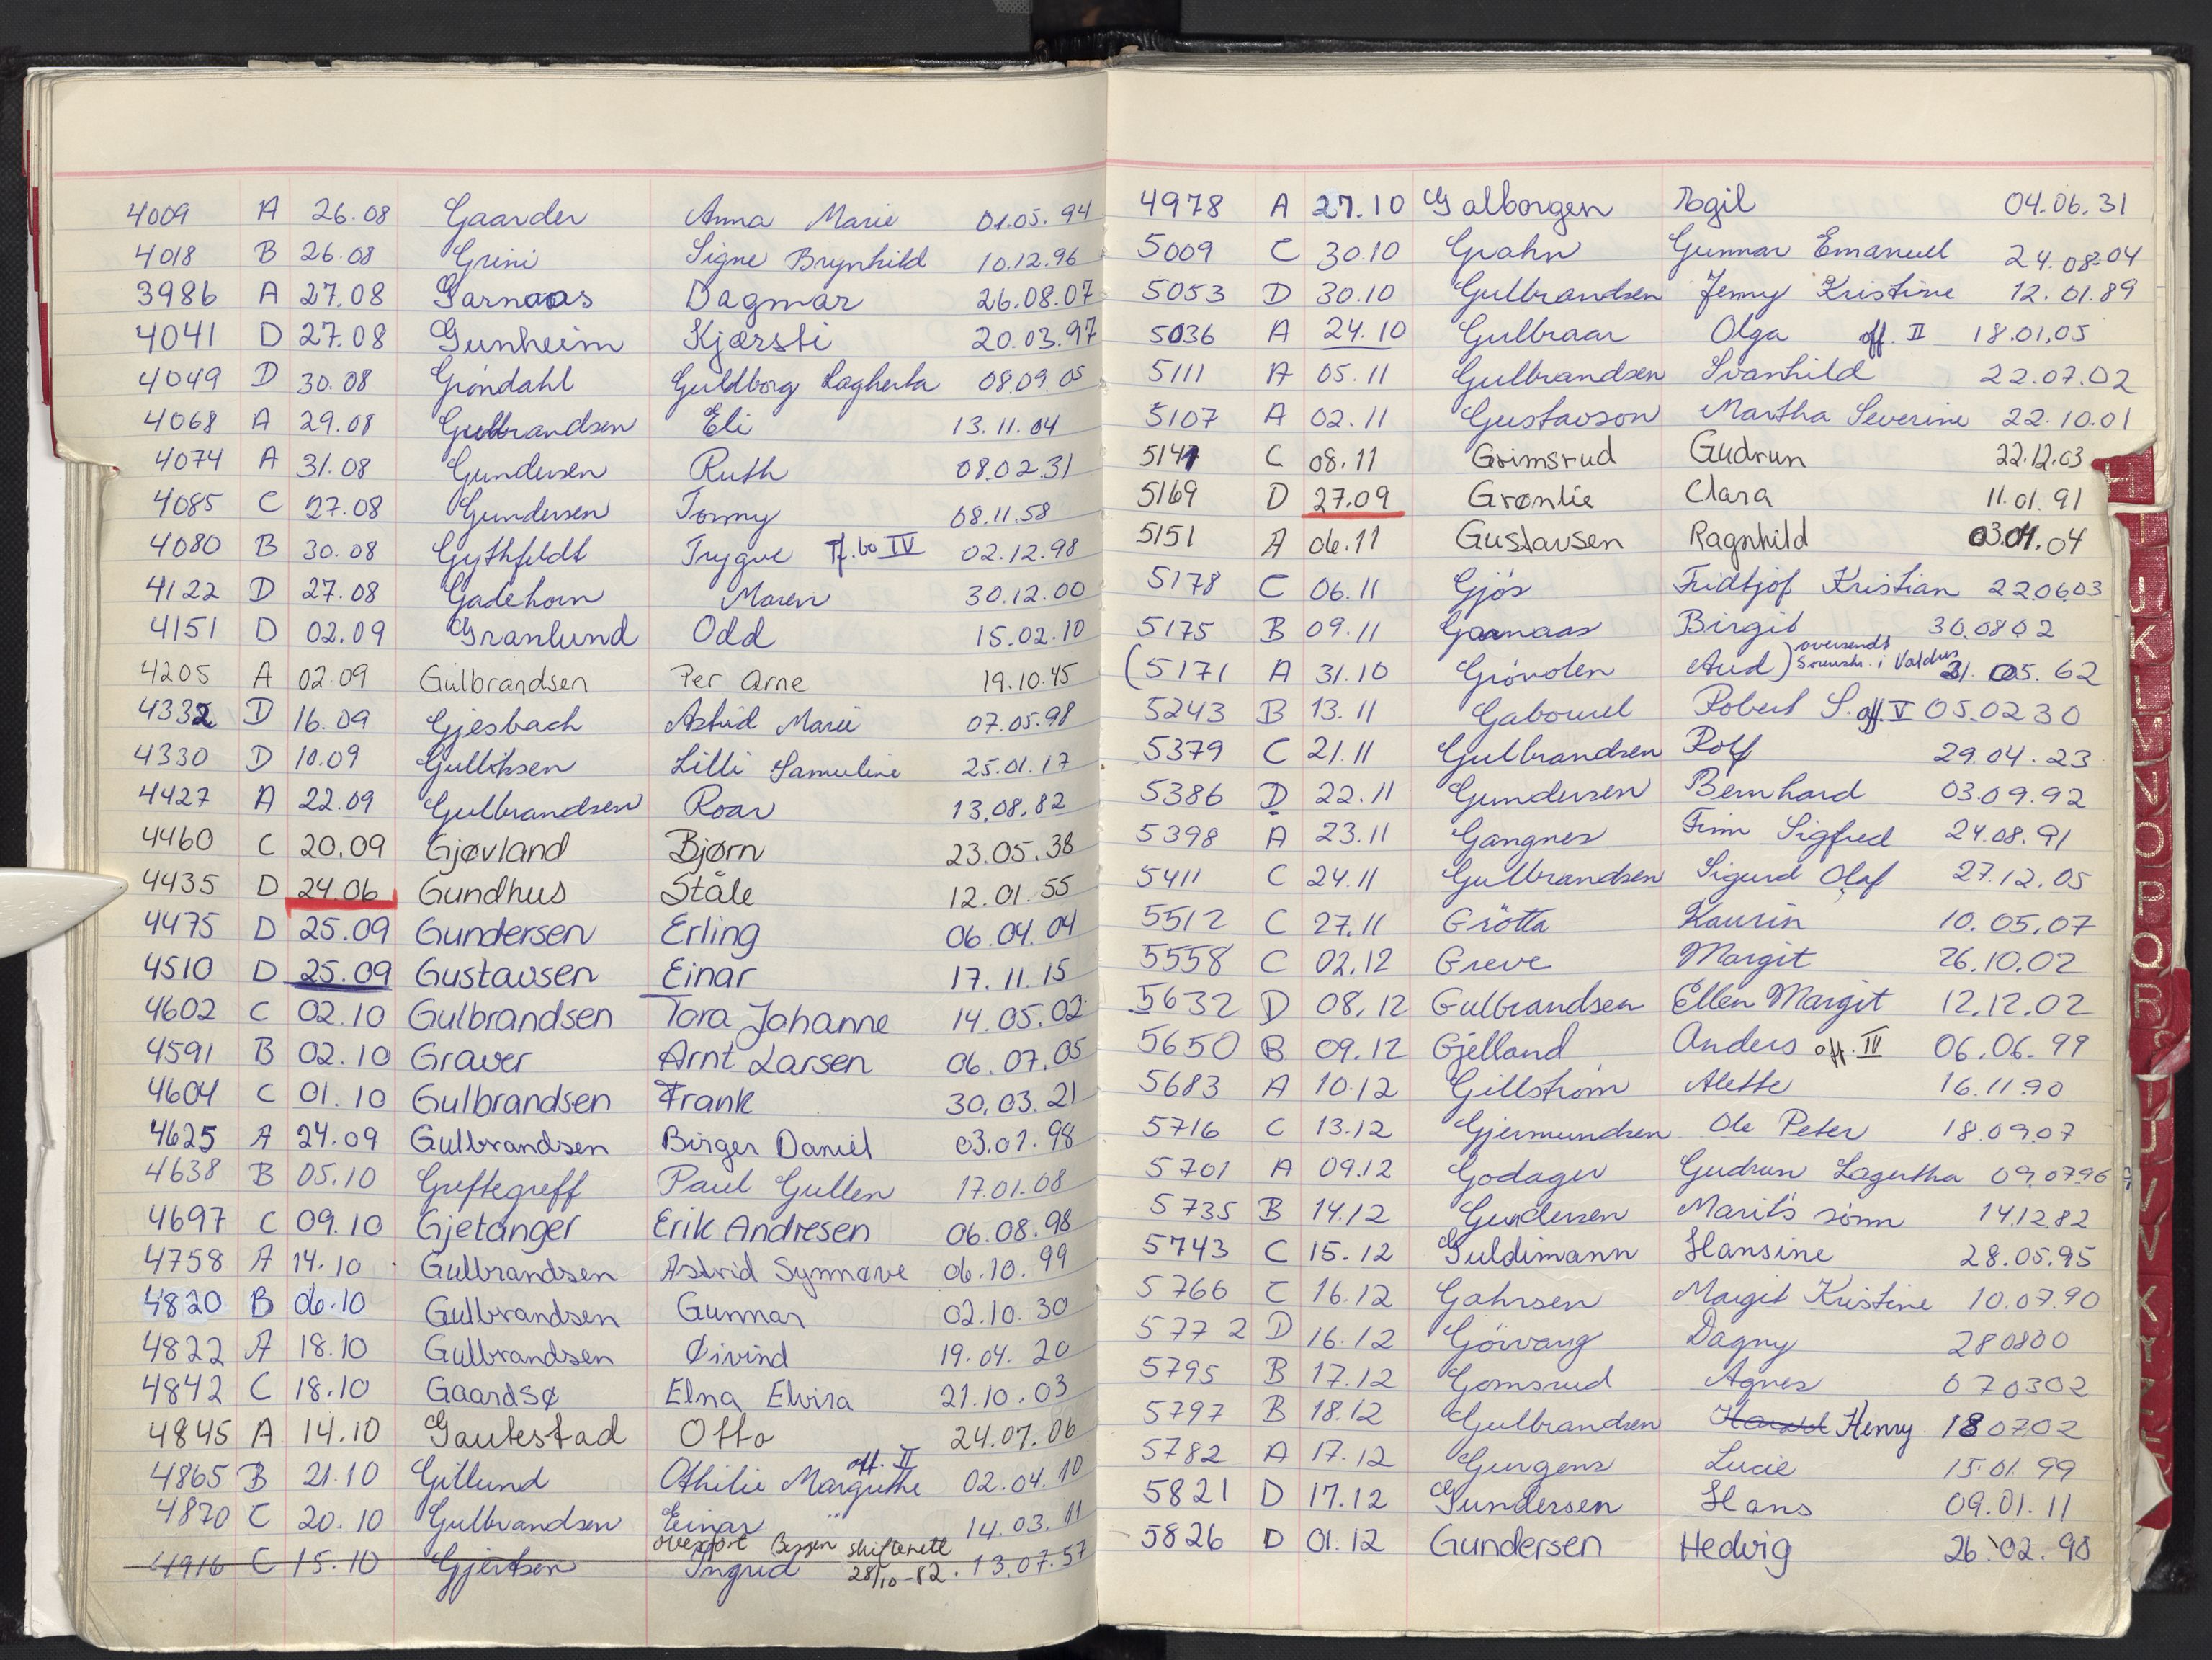 4009 A 26.08 Gaarder Anna Marie 01.05.94
4018 B 26.08 Grini Signe Brynhild 10.12.96
3986 A 27.08 Garnaas Dagmar 26.08.07
4041 D 27.08 Gunheim Kjærsti 20.03.97
4049 D 30.08 Gröndahl Guldborg Lagherta 08.09.05
4068 A 29.08 Gulbrandsen Eli 13.11.04
4074 A 31.08 Gundersen Ruth 08.02.31
4085 C 27.08 Gundersen Tommy 08.11.58
4080 B 30.08 Gythfeldt Trygve bo IV 02.12.98
4122 D 27.08 Gadehorn Maren 30.12.00
4151 D 02.09 Granlund Odd 15.02.10
4205 A 02.09 Gulbrandsen Per Arne 19.10.45
4332 D 16.09 Gjesbach Astrid Marie 07.05.98
4330 D 10.09 Gulliksen Lilli Samueline 25.01.17
4427 A 22.09 Gulbrandsen Roar 13.08.82
4460 C 20.09 Gjøvland Bjørn 23.05.38
4435 D 24.06 Gundhus Ståle 12.01.55
4475 D 25.09 Gundersen Erling 06.04.04
4510 D 25.09 Gustavsen Einar 17.11.15
4602 C 02.10 Gulbrandsen Tora Johanne 14.05.02
4591 B 02.10 Graver Arnt Larsen 06.07.05
4604 C 01.10 Gulbrandsen Frank 30.03.21
4625 A 24.09 Gulbrandsen Birger Daniel 03.01.98
4638 B 05.10 Greftegreff Paul Gullen 17.01.08
4697 C 09.10 Gjetanger Erik Andresen 06.08.98
4758 A 14.10 Gulbrandsen Astrid Synnøve 06.10.99
4820 B 06.10 Gulbrandsen Gunnar 02.10.30
4822 A 18.10 Gulbrandsen Øivind 19.04.20
4842 C 18.10 Gaardsø Elna Elvira 21.10.03
4845 A 14.10 Gautestad Otto 24.07.06
off. II
4865 B 21.10 Gillund Othilie Margrethe 02.04.10
4870 C 20.10 Gulbrandsen Einar 14.03.11
overført Bergen skifterett
4916 C 15.10 Gjertsen Ingrid 28/10-82. 13.07.57
4978 A 27.10 Galborgen Egil 04.06.31
5009 C 30.10 Grahn Gunnar Emanuel 24.08.04
5053 D 30.10 Gulbrandsen Jenny Kristine 12.01.89
5036 A 24.10 Gulbraar Olga off. II 18.01.05
5111 A 05.11 Gulbrandsen Svanhild 22.07.02
5107 A 02.11 Gustavson Martha Severine 22.10.01
5141 C 08.11 Grimsrud Gudrun 22.12.03
5169 D 27.09 Grønlie Clara 11.01.91
5151 A 06.11 Gustavsen Ragnhild 03.04.04
5178 C 06.11 Gjös Fridtjof Kristian 22.06.03
5175 B 09.11 Garnaas Birgit 30.08 02
oversendt
(5171 A 31.10 Grövolen Aud) Sorensk. i Valdres 21.05.62
5243 B 13.11 Gabourel Robert S. off. V 05.02 30
5379 C 21.11 Gulbrandsen Rolf 29.04.23
5386 D 22.11 Gundersen Bernhard 03.09.92
5398 A 23.11 Gangnes Finn Sigfred 24.08.91
5411 C 24.11 Gulbrandsen Sigurd Olaf 27.12.05
5512 C 27.11 Grötta Kaurin 10.05.07
5558 C 02.12 Greve Margit 26.10.02
5632 D 08.12 Gulbrandsen Ellen Margit 12.12.02
5650 B 09.12 Gjelland Anders off. IV 06.06.99
5683 A 10.12 Gillström Alette 16.11.90
5716 C 13.12 Gjermundsen Ole Peter 18.09.07
5701 A 09.12 Godager Gudrun Lagertha 09.07.96
5735 B 14.12 Gundersen Marit's sönn 14.12.82
5743 C 15.12 Guldimann Hansine 28.05.95
5766 C 16.12 Gahrsen Margit Kristine 10.07.90
5772 D 16.12 Görvang Dagny 280800
5795 B 17.12 Gomsrud Agnes 070302
5797 B 18.12 Gulbrandsen Harald Henry 180702
5782 A 17.12 Gurgens Lucie 15.01.99
5821 D 17.12 Gundersen Hans 09.01.11
5826 D 01.12 Gundersen Hedvig 26.02.98
H
I
J
K
L
M
N
O
P
Q
R
S
T
U
V